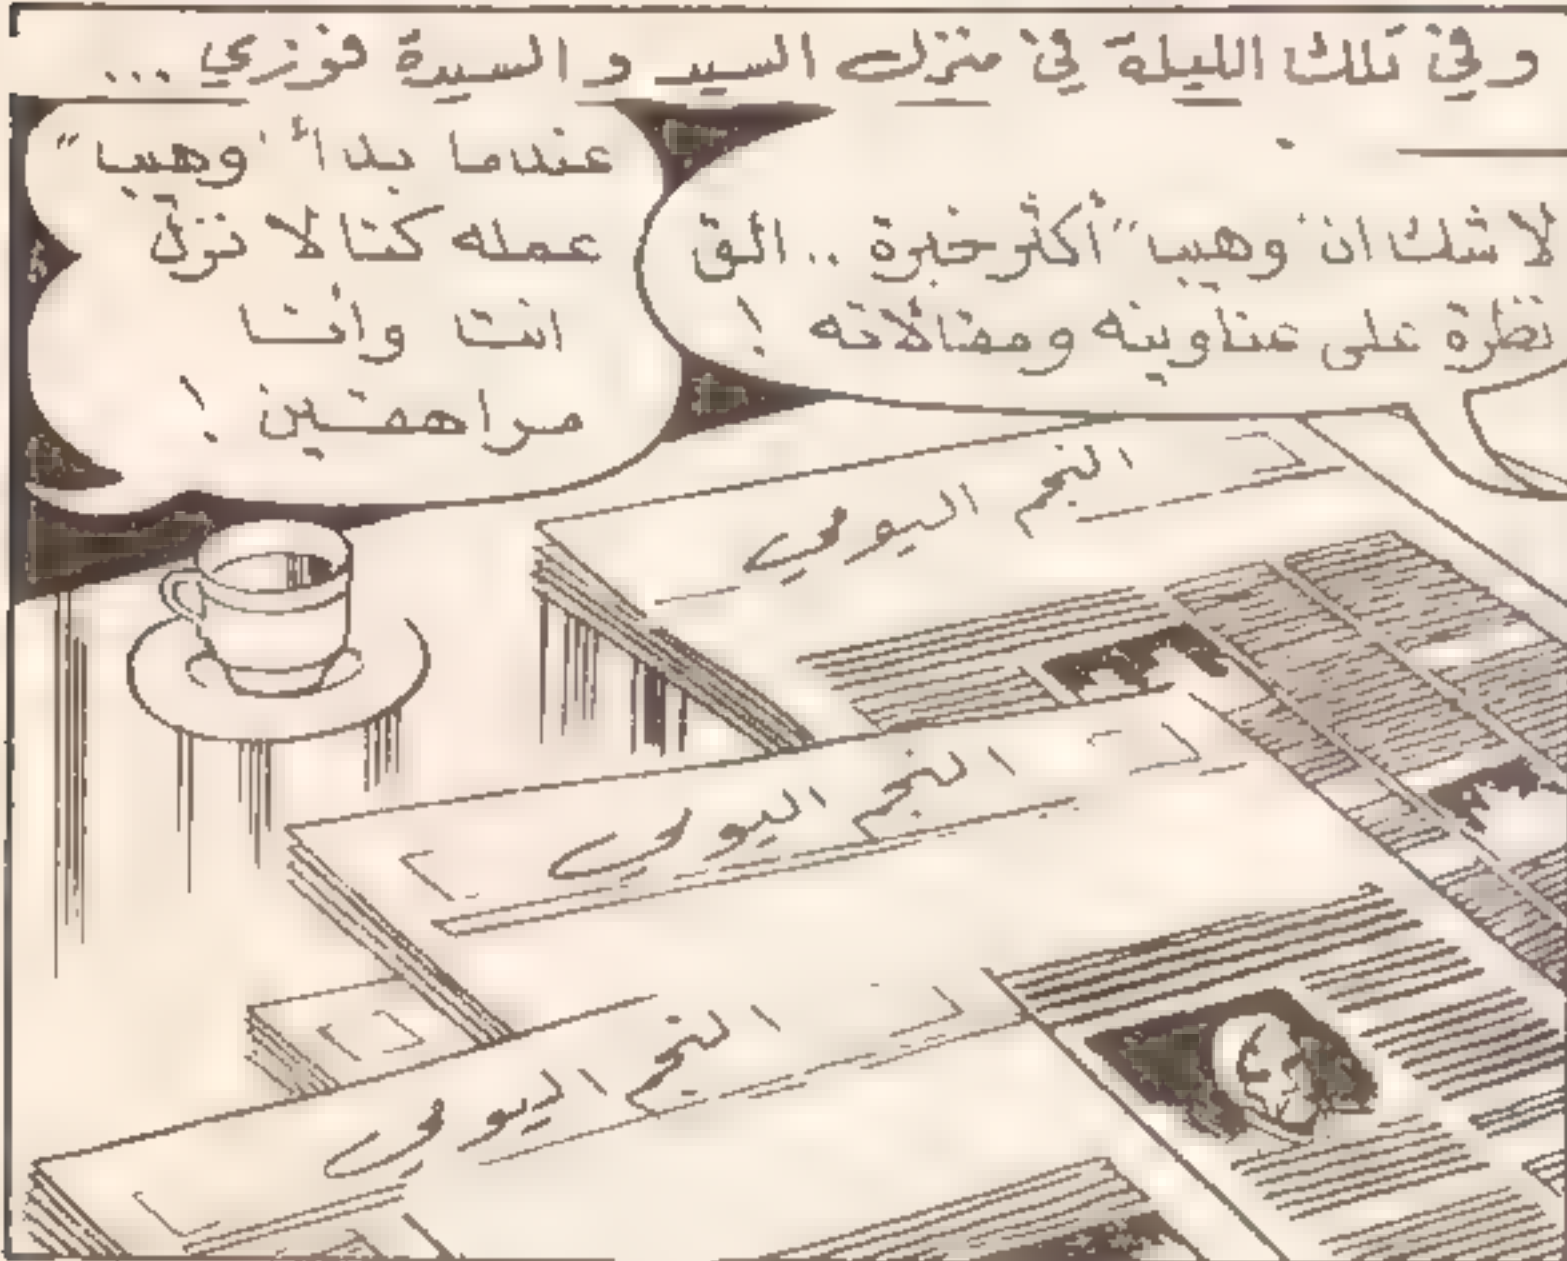 وفي تلك الليلة في منزل السيد و السيدة فوزي ...
لا شك ان "وهيب" أكثر خبرة .. الق
نظرة على عناوينه ومقالاته !
عندما بدأ "وهيب"
عمله كنا لا نزل
انت وانا
مراهقين !
النجم اليومي
النجم اليومي
النجم اليومي